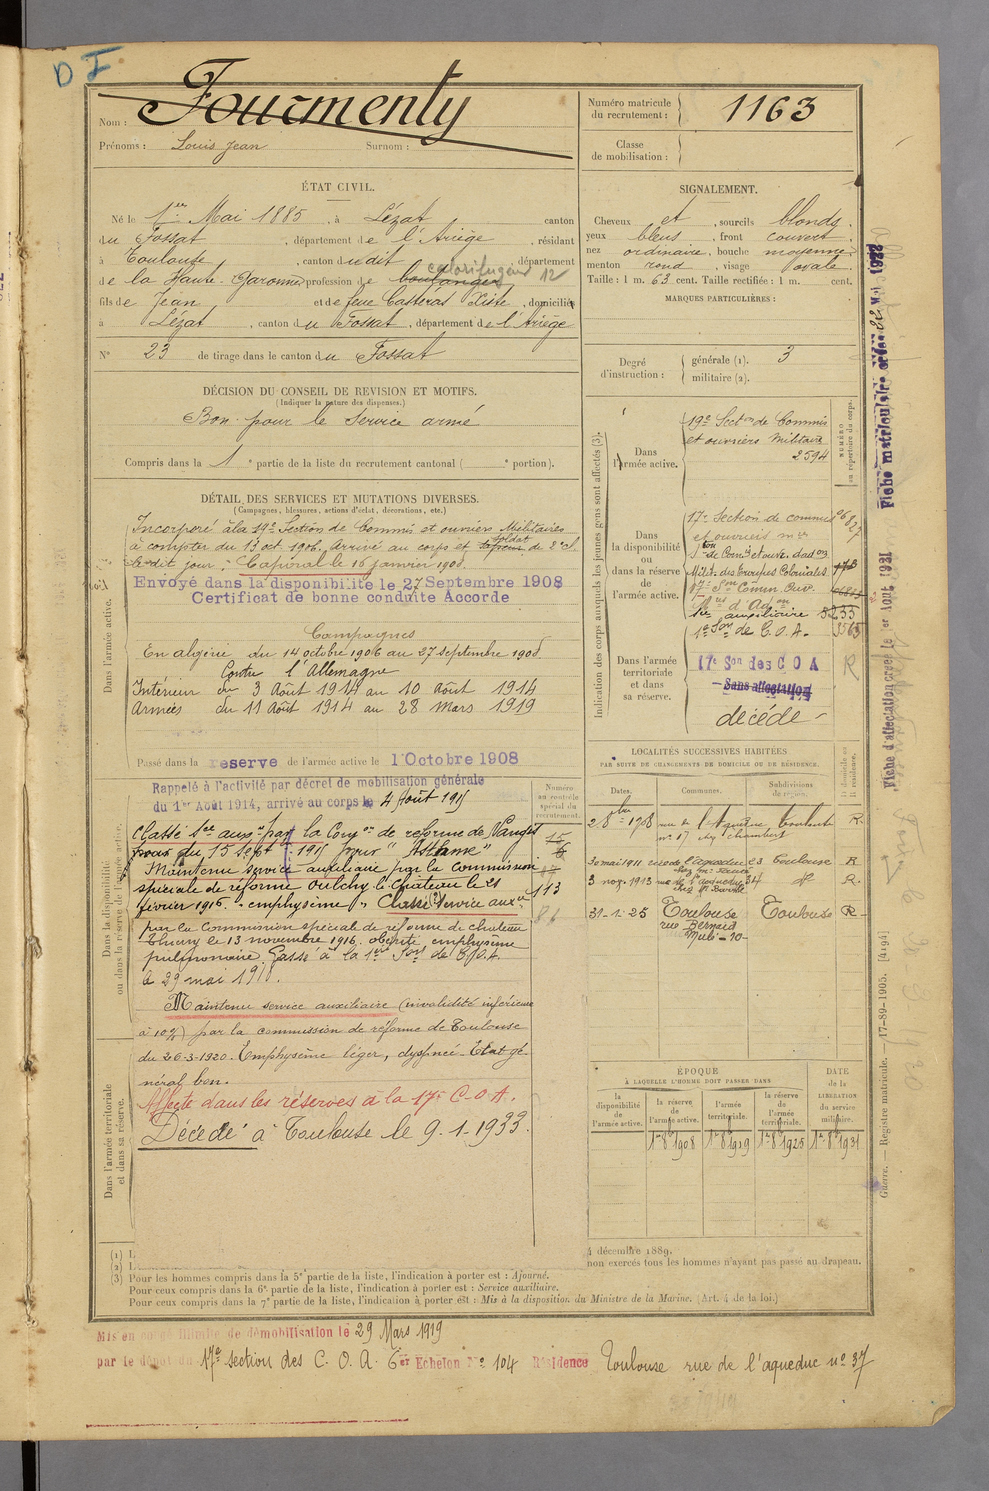 D I
Nom : Fourmenty
Prénoms : Louis Jean Surnom :
Numéro matricule du recrutement : 1163
Classe de mobilisation :
ÉTAT CIVIL.
Né le 1er Mai 1885, à Lézat canton
du Fossat, département de l'Ariège, résidant
à Toulouse, canton dudit département
de la Haute-Garonne, profession de boulanger calorifugeur 12
fils de Jean et de feue Casteras Xiste, domiciliés
à Lézat, canton du Fossat, département de l'Ariège
N° 23 de tirage dans le canton du Fossat
SIGNALEMENT.
Cheveux et, sourcils blonds,
yeux bleus, front couvert
nez ordinaire, bouche moyenne
menton rond, visage ovale.
Taille : 1 m. 63 cent. Taille rectifiée : 1 m. cent.
MARQUES PARTICULIÈRES :
Degré d'instruction : générale (1). 3
militaire (2).
DÉCISION DU CONSEIL DE REVISION ET MOTIFS.
(Indiquer la nature des dispenses.)
Bon pour le Service armé
Compris dans la 1e partie de la liste du recrutement cantonal ( e portion).
DÉTAIL DES SERVICES ET MUTATIONS DIVERSES.
(Campagnes, blessures, actions d'éclat, décorations, etc.)
Dans l'armée active.
Incorporé à la 19e Section de Commis et ouvriers Militaires
à compter du 13 oct. 1906. Arrivé au corps et soldat de 2e cl.
ledit jour. Caporal le 16 janvier 1908.
Envoyé dans la disponibilité le 27 Septembre 1908
Certificat de bonne conduite Accordé
Campagnes
En algérie du 14 octobre 1906 au 27 septembre 1908
Contre l'Allemagne
Intérieur du 3 Août 1914 au 10 Août 1914
Armées du 11 Août 1914 au 28 Mars 1919
Passé dans la reserve de l'armée active le 1 Octobre 1908
Dans la disponibilité ou dans la réserve de l'armée active.
Numéro au contrôle spécial du recrutement.
Rappelé à l'activité par décret de mobilisation générale
du 1er Août 1914, arrivé au corps le 4 Août 191
Classé Sce auxre par la Comon de réforme de
du 15 sept 191 pour "Asthme"
Maintenu service auxiliaire par la Commission
spéciale de réforme Oulchy le Château le 21
février 1916. "emphysème". Classé Service auxre
par la Commission spéciale de réforme de chateau
Thierry le 13 novembre 1916. obésité, emphysème
pulmonaire. Passé à la 1re Son de C.O.A.
le 29 mai 1918.
113
86
Maintenu service auxiliaire (invalidité inférieure
à 10%) par la commission de réforme de Toulouse
du 26-3-1920. Emphysème léger, dyspnée. Etat gé-
néral bon.
Affecté dans les réserves à la 17e C.O.A.
Décédé à Toulouse le 9-1-1933.
Dans l'armée territoriale et dans sa réserve.
Indication des corps auxquels les jeunes gens sont affectés (3).
NUMÉRO au répertoire du corps.
Dans l'armée active.
19e Secton de Commis
et ouvriers Militaires
2594
Dans la disponibilité ou dans la réserve de l'armée active.
17e Section de commis
et ouvriers mres
Son de Comis et ouv. d'adon
Milit. des troupes Coloniales
17e Son Comm. Ouv.
d'Adon
Sce auxiliaire 5235
1e Son de C.O.A. 3565
Dans l'armée territoriale et dans sa réserve.
17e Son des C O A R
Sans affectation
décédé
LOCALITÉS SUCCESSIVES HABITÉES
PAR SUITE DE CHANGEMENTS DE DOMICILE OU DE RÉSIDENCE.
Dates. Communes. Subdivisions de région. D. domicile ou R. résidence.
28 bre 1908 rue de l'Aqueduc Toulouse R.
n° 17 chez Chambert
30 mai 1911 rue de l'aqueduc 23 Toulouse R
3 nov. 1913 rue de l'aqueduc 34 do R.
31-1-25 Toulouse Toulouse R
rue Bernard
Mulé -10-
ÉPOQUE
À LAQUELLE L'HOMME DOIT PASSER DANS
DATE de la LIBÉRATION du service militaire.
la disponibilité de l'armée active. la réserve de l'armée active. l'armée territoriale. la réserve de l'armée territoriale.
1er 8bre 1908 1er 8bre 1919 1er 8bre 1925 1er 8bre 1931
(1) L
(2) L
4 décembre 1889.
non exercés tous les hommes n'ayant pas passé au drapeau.
(3) Pour les hommes compris dans la 5e partie de la liste, l'indication à porter est : Ajourné.
Pour ceux compris dans la 6e partie de la liste, l'indication à porter est : Service auxiliaire.
Pour ceux compris dans la 7e partie de la liste, l'indication à porter est : Mis à la disposition du Ministre de la Marine. (Art. 4 de la loi.)
Mis en congé illimité de démobilisation le 29 Mars 1919
par le dépôt du 17e section des C.O.A. 6er Echelon N° 104 Résidence Toulouse rue de l'aqueduc n° 37
Guerre. — Registre matricule. — 17-89-1905. [4194]
Fiche d'affectation créée le 1er Aout 1921
Fiche matriculaire créée 22 Mai 1922